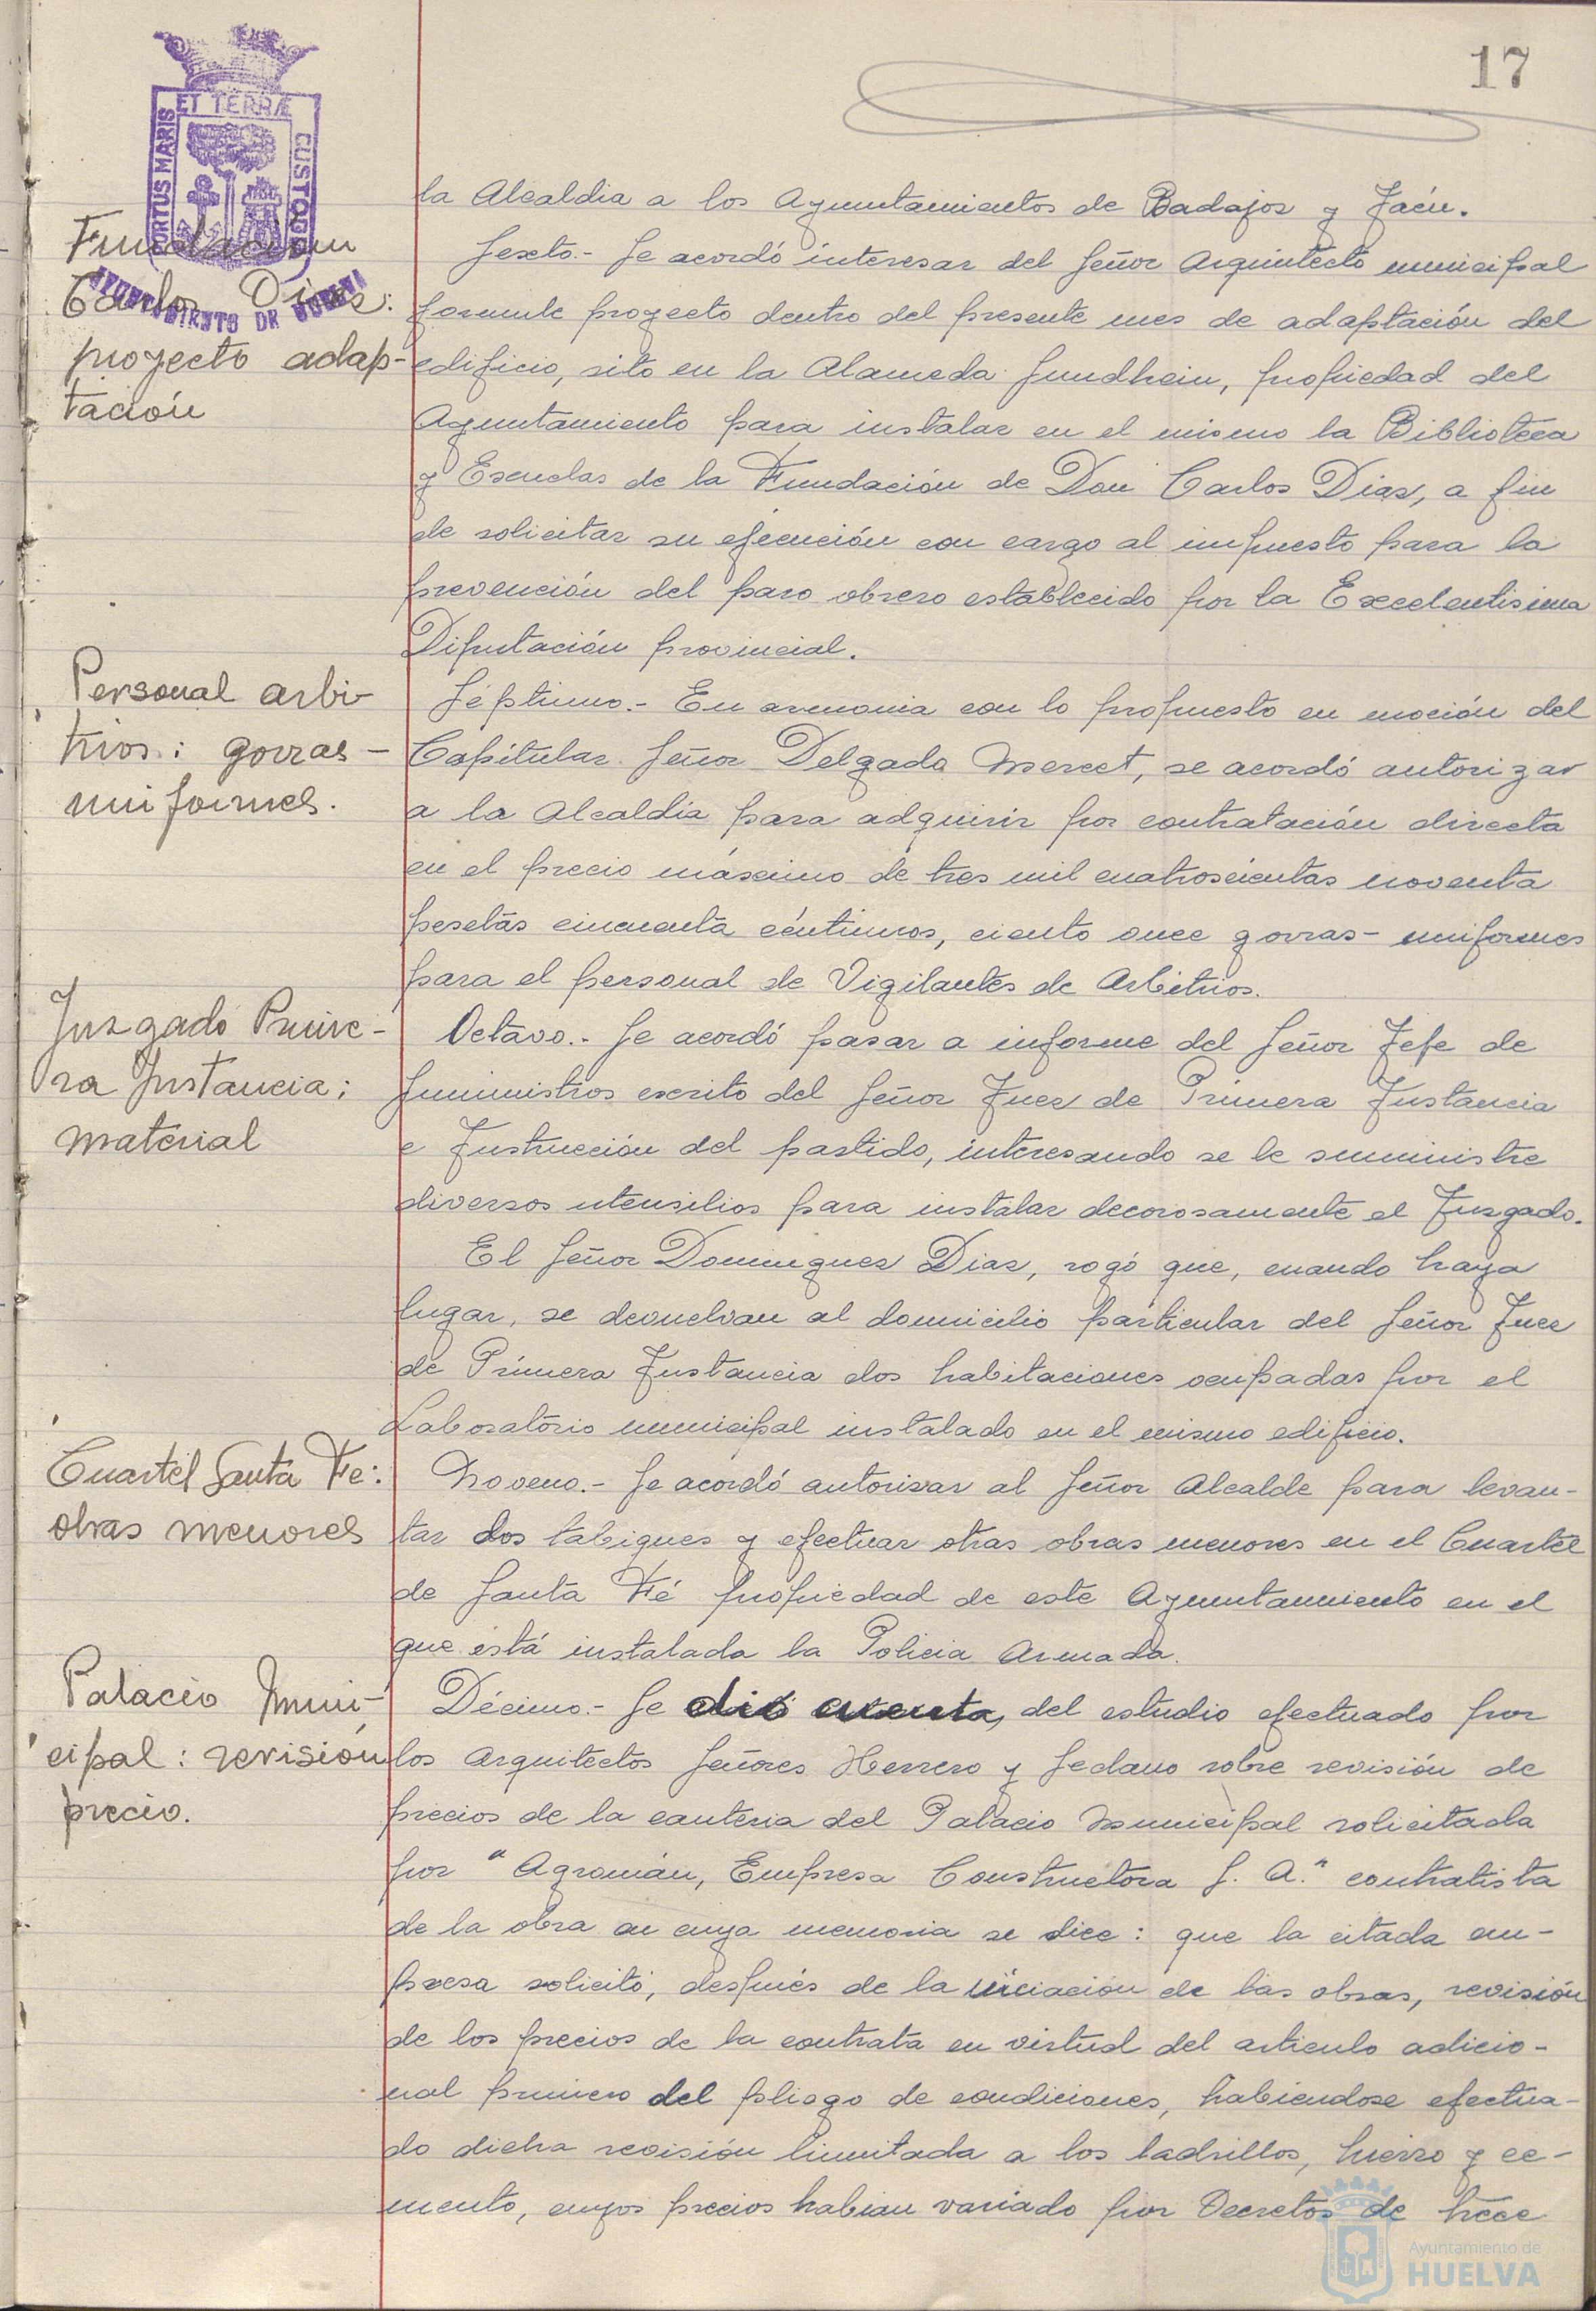 17
PORTUS MARIS ET TERRÆ CUSTODIA
AYUNTAMIENTO DE HUELVA
la Alcaldia a los Ayuntamientos de Badajoz y Jaén.
Fundación
Carlos Díaz:
proyecto adap-
tación
Sexto.- Se acordó interesar del Señor Arquitecto municipal
formule proyecto dentro del presente mes de adaptación del
edificio, sito en la Alameda Sundhein, propiedad del
Ayuntamiento para instalar en el mismo la Biblioteca
y Escuelas de la Fundación de Don Carlos Díaz, a fin
de solicitar su ejecución con cargo al impuesto para la
prevención del paro obrero establecido por la Excelentisima
Diputación provincial.
Personal arbi-
trios: gorras-
uniformes.
Séptimo.- En armonia con lo propuesto en moción del
Capitular Señor Delgado Merect, se acordó autorizar
a la Alcaldía para adquirir por contratación directa
en el precio máximo de tres mil cuatroscientas noventa
pesetas cincuenta céntimos, ciento once gorras-uniformes
para el personal de Vigilantes de Arbitrios.
Juzgado Prime-
ra Instancia:
material
Octavo.- Se acordó pasar a informe del Señor Jefe de
Suministros escrito del Señor Juez de Primera Instancia
e Instrucción del partido, interesando se le suministre
diversos utensilios para instalar decorosamente el Juzgado.
El Señor Dominguez Diaz, rogó que, cuando haya
lugar, se devuelvan al domicilio particular del Señor Juez
de Primera Instancia dos habitaciones ocupadas por el
Laboratorio municipal instalado en el mismo edificio.
Cuartel Santa Fe:
obras menores
Noveno.- Se acordó autorizar al Señor Alcalde para levan-
tar dos tabiques y efectuar otras obras menores en el Cuartel
de Santa Fé propiedad de este Ayuntamiento en el
que está instalada la Policia Armada.
Palacio Muni-
cipal: revisión
precio.
Décimo.- Se dió cuenta, del estudio efectuado por
los Arquitectos Señores Herrero y Sedano sobre revisión de
precios de la canteria del Palacio Municipal solicitada
por "Agromán, Empresa Constructora S. A." contratista
de la obra en cuya memoria se dice: que la citada em-
presa solicitó, después de la iniciación de las obras, revisión
de los precios de la contrata en virtud del articulo adicio-
nal primero del pliego de condiciones, habiendose efectua-
do dicha revisión limitada a los ladrillos, hierro y ce-
mento, cuyos precios habian variado por Decretos de trece
Ayuntamiento de
HUELVA